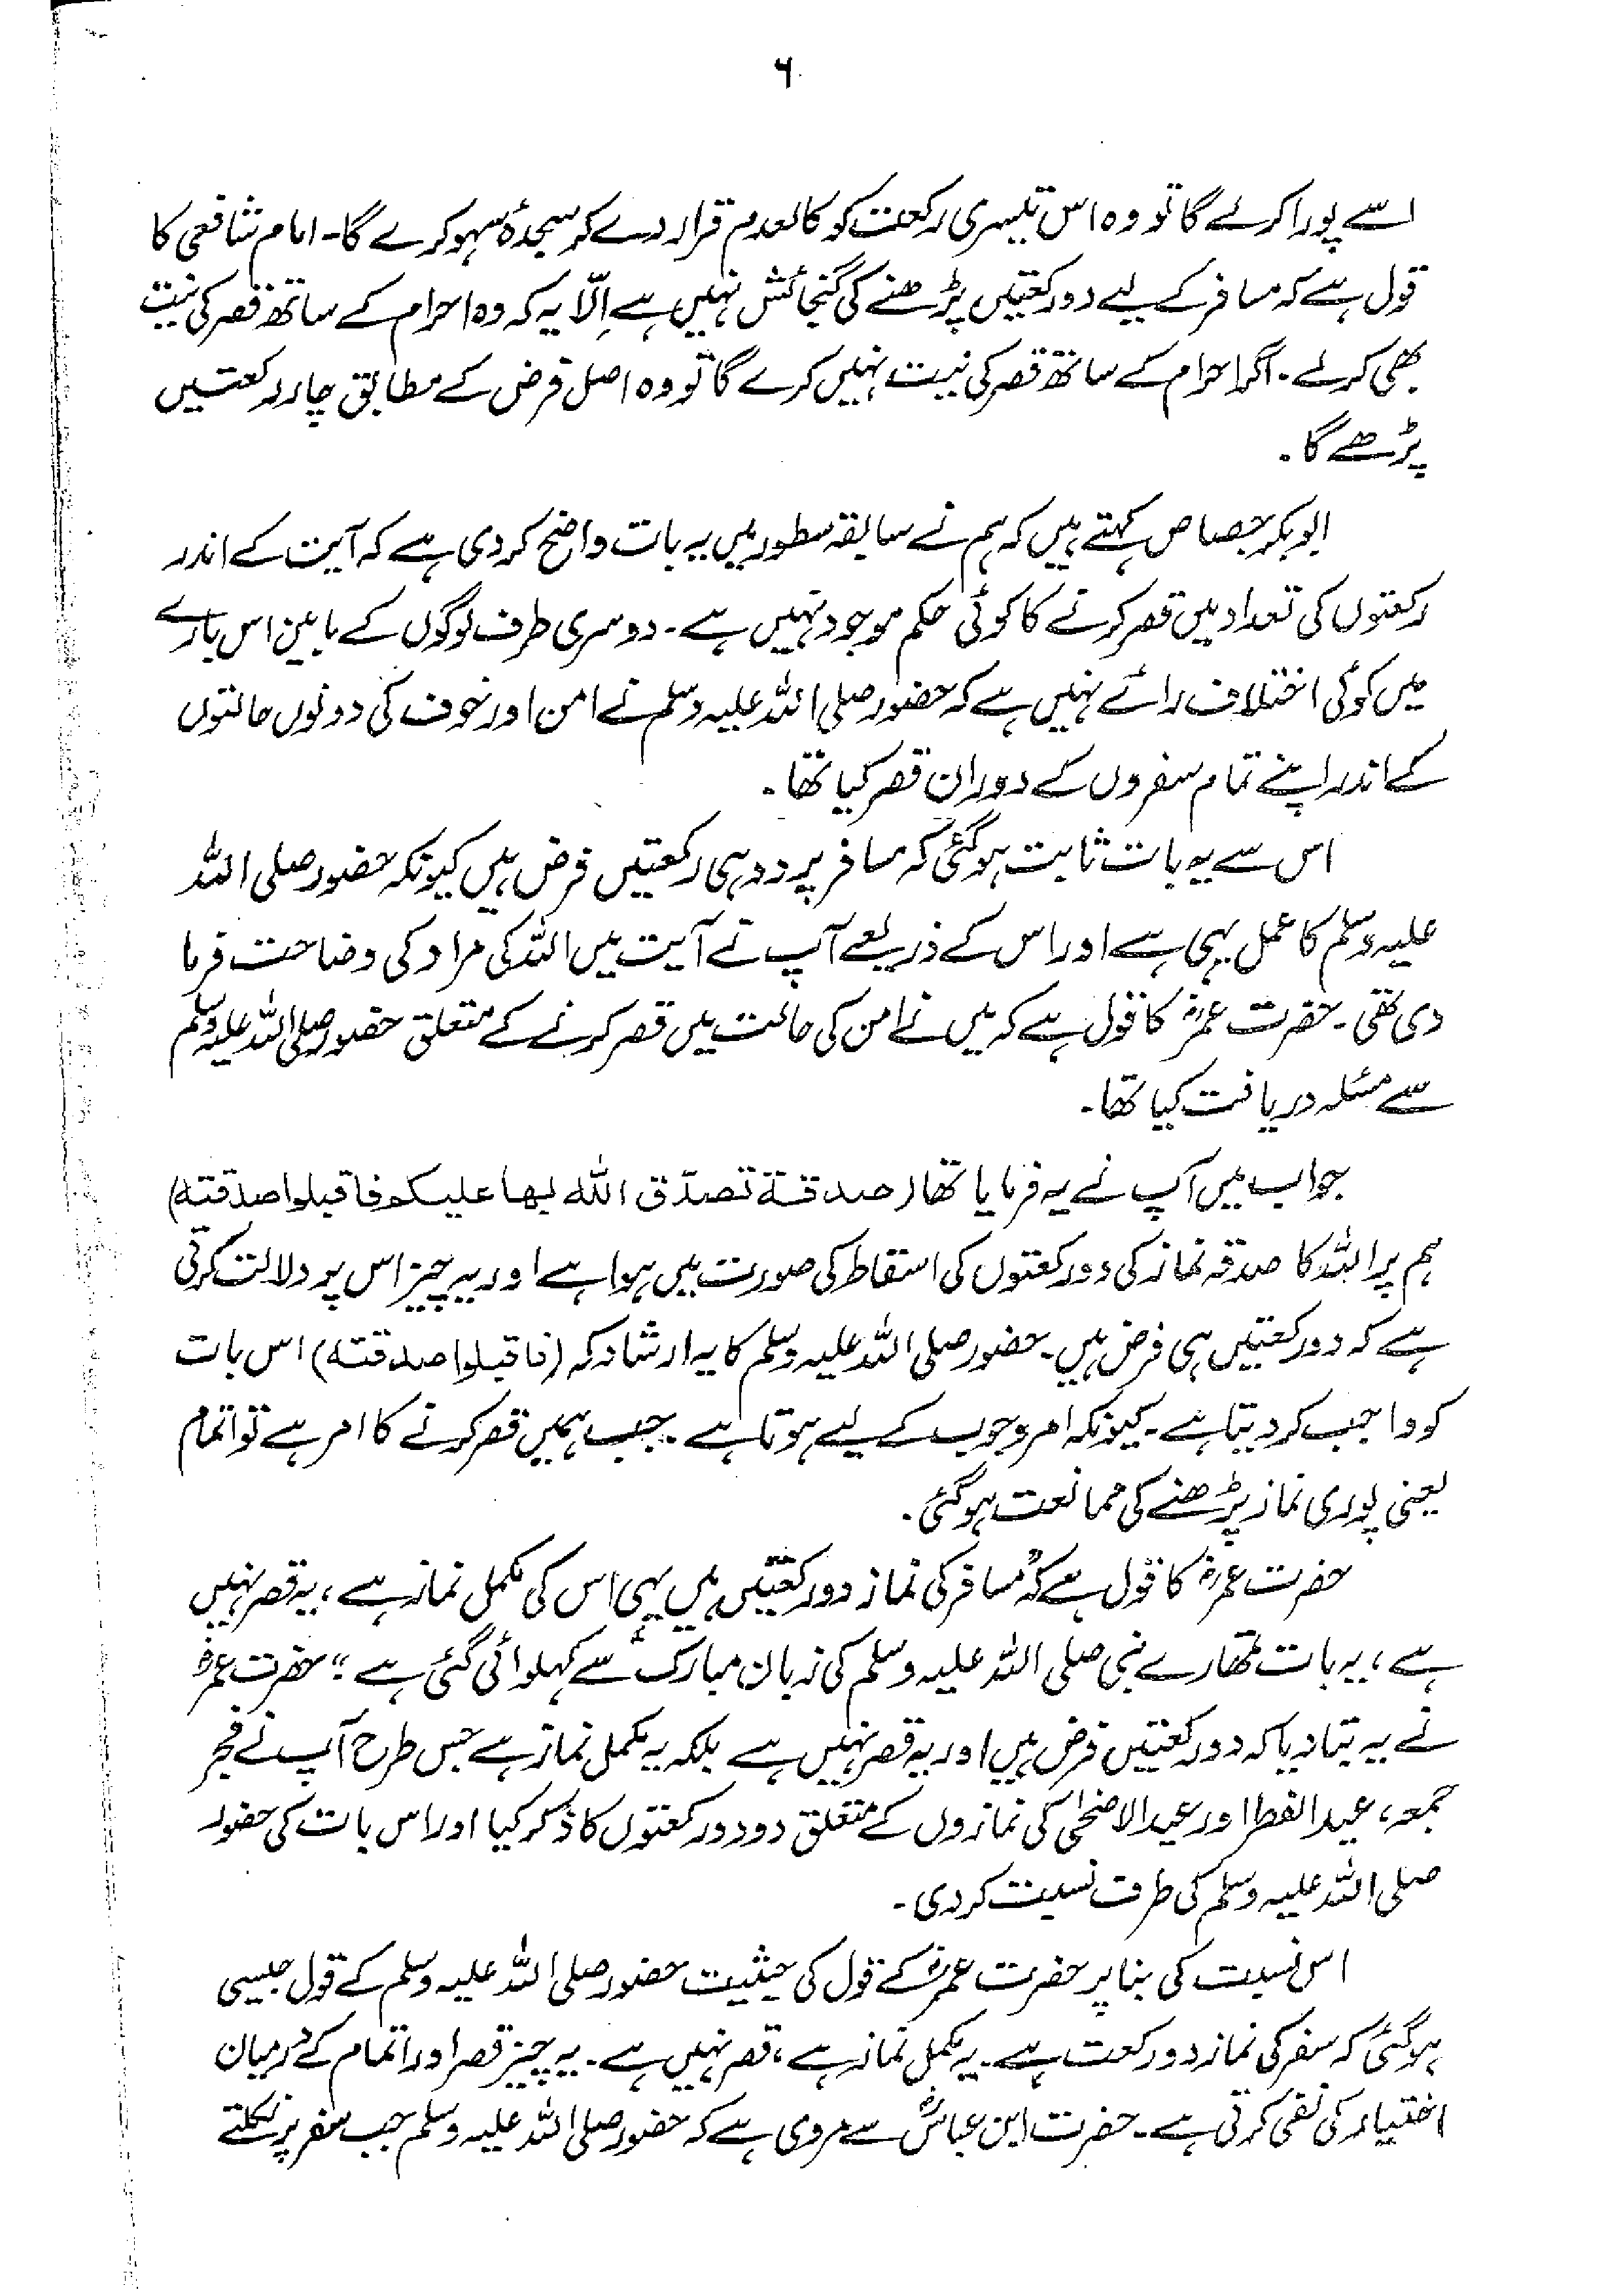 ۶
اسے پورا کرلے گا تو وہ اس تیسری رکعت کو کالعدم قرار دے کر سجدۂ سہو کرے گا۔ امام شافعی کا
قول ہے کہ مسافر کے لیے دو رکعتیں پڑھنے کی گنجائش نہیں ہے اِلّا یہ کہ وہ احرام کے ساتھ قصر کی نیت
بھی کرلے۔ اگر احرام کے ساتھ قصر کی نیت نہیں کرے گا تو وہ اصل فرض کے مطابق چار رکعتیں
پڑھے گا۔
ابوبکر جصاص کہتے ہیں کہ ہم نے سابقہ سطور میں یہ بات واضح کردی ہے کہ آیت کے اندر
رکعتوں کی تعداد میں قصر کرنے کا کوئی حکم موجود نہیں ہے۔ دوسری طرف لوگوں کے مابین اس بارے
میں کوئی اختلاف رائے نہیں ہے کہ حضور صلی اللہ علیہ وسلم نے امن اور خوف کی دونوں حالتوں
کے اندر اپنے تمام سفروں کے دوران قصر کیا تھا۔
اس سے یہ بات ثابت ہوگئی کہ مسافر پر دو ہی رکعتیں فرض ہیں کیونکہ حضور صلی اللہ
علیہ وسلم کا عمل یہی ہے اور اس کے ذریعے آپ نے آیت میں اللہ کی مراد کی وضاحت فرما
دی تھی۔ حضرت عمرؓ کا قول ہے کہ میں نے امن کی حالت میں قصر کرنے کے متعلق حضور صلی اللہ علیہ وسلم
سے مسئلہ دریافت کیا تھا۔
جواب میں آپ نے یہ فرمایا تھا (صدقة تصدّق الله بها عليكم فاقبلوا صدقته)
ہم پر اللہ کا صدقہ نماز کی دو رکعتوں کی اسقاط کی صورت میں ہوا ہے اور یہ چیز اس پر دلالت کرتی
ہے کہ دو رکعتیں ہی فرض ہیں۔ حضور صلی اللہ علیہ وسلم کا یہ ارشاد کہ (فاقبلوا صدقته) اس بات
کو واجب کر دیتا ہے۔ کیونکہ امر وجوب کے لیے ہوتا ہے۔ جب ہمیں قصر کرنے کا امر ہے تو اتمام
یعنی پوری نماز پڑھنے کی ممانعت ہوگئی۔
حضرت عمرؓ کا قول ہے کہ "مسافر کی نماز دو رکعتیں ہیں یہی اس کی مکمل نماز ہے، یہ قصر نہیں
ہے، یہ بات تمھارے نبی صلی اللہ علیہ وسلم کی زبان مبارک سے کہلوائی گئی ہے" حضرت عمرؓ
نے یہ بتا دیا کہ دو رکعتیں فرض ہیں اور یہ قصر نہیں ہے بلکہ یہ مکمل نماز ہے جس طرح آپ نے فجر
جمعہ، عید الفطر اور عید الاضحیٰ کی نمازوں کے متعلق دو دو رکعتوں کا ذکر کیا اور اس بات کی حضور
صلی اللہ علیہ وسلم کی طرف نسبت کردی۔
اس نسبت کی بنا پر حضرت عمرؓ کے قول کی حیثیت حضور صلی اللہ علیہ وسلم کے قول جیسی
ہوگئی کہ سفر کی نماز دو رکعت ہے۔ یہ مکمل نماز ہے، قصر نہیں ہے۔ یہ چیز قصر اور اتمام کے درمیان
اختیار کی نفی کرتی ہے۔ حضرت ابن عباسؓ سے مروی ہے کہ حضور صلی اللہ علیہ وسلم جب سفر پر نکلتے